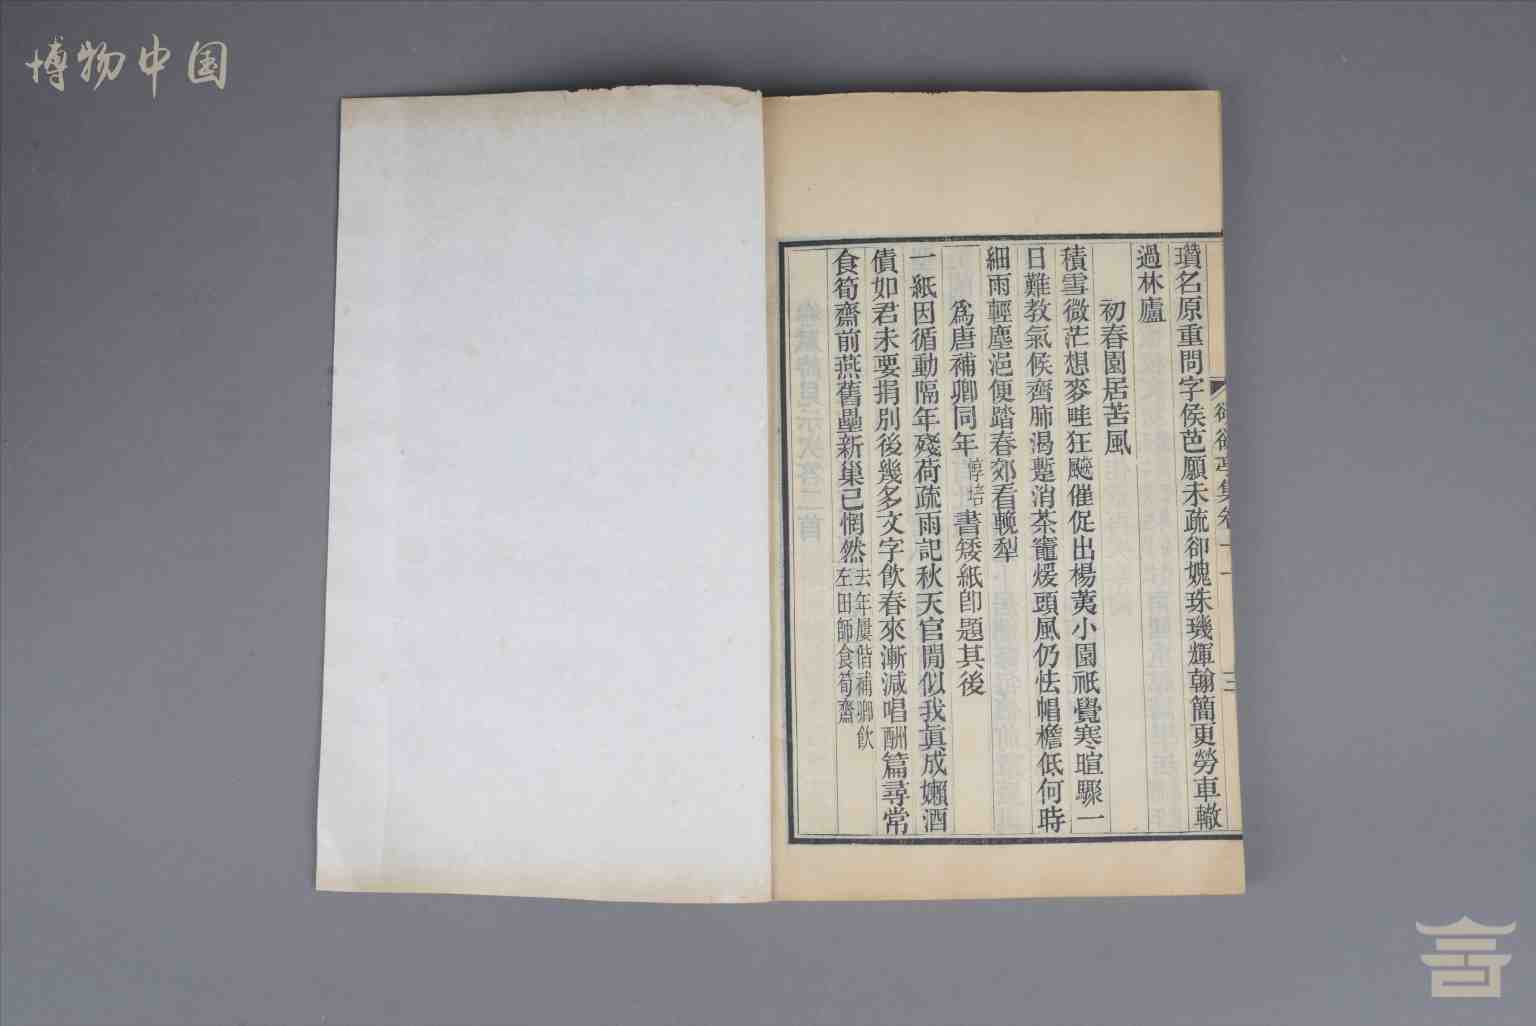 博物中国
瓚名原重問字侯芭願未疏卻媿珠璣輝翰簡更勞車轍
過林廬
初春園居苦風
積雪微茫想麥畦狂飈催促出楊荑小園祇覺寒暄驟一
日難教氣候齊肺渴蹔消茶竈煖頭風仍怯帽檐低何時
細雨輕塵浥便踏春郊看輓犁
爲唐補卿同年惇培書矮紙卽題其後
一紙因循動隔年殘荷疏雨記秋天官閒似我眞成嬾酒
債如君未要捐別後幾多文字飲春來漸減唱酬篇尋常
食筍齋前燕舊壘新巢已惘然去年屢偕補卿飲
左田師食筍齋
集卷十一
三